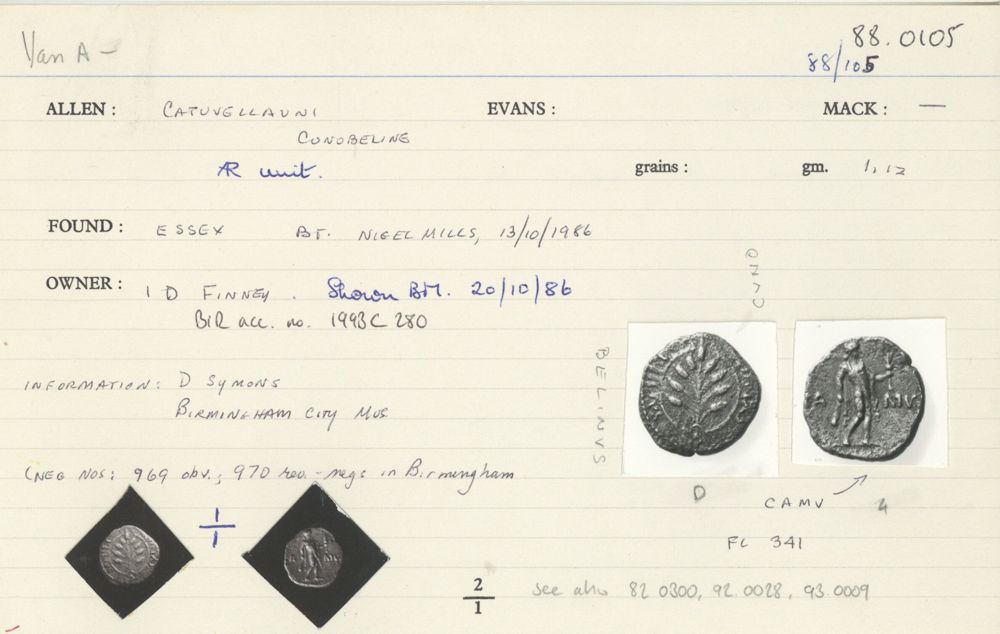 Van A -
88.0105
88/105
ALLEN : CATUVELLAUNI EVANS : MACK : —
CUNOBELINE
AR unit. grains : gm. 1.12
FOUND : ESSEX BT. NIGEL MILLS, 13/10/1986
OWNER : I D FINNEY. Shown BM. 20/10/86
BIR acc. no. 1993 C 280
CVNO
BELINVS
INFORMATION: D SYMONS
BIRMINGHAM CITY MUS
(NEG NOS: 969 obv.; 970 rev. - negs in Birmingham
D
CAMV
4
FL 341
1/1
2/1
see also 82.0300, 92.0028, 93.0009